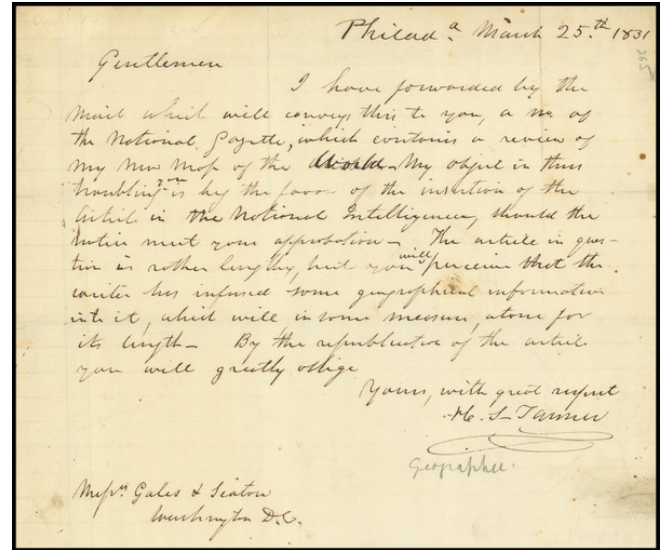 Philad.a March 25.th 1831
265
Gentlemen
I have forwarded by the
mail which will convey this to you, a no of
the National Gazette, which contains a review of
my New Map of the World - My object in thus
troubling you is beg the favor of the insertion of the
Article in the National Intelligencer, should the
notice meet your approbation - The article in ques-
tion is rather lengthy, but you will perceive that the
writer has infused some geographical information
into it, which will in some measure, atone for
its length - By the republication of the article
you will greatly oblige
Yours, with great respect
H. S. Tanner
Geographer.
Messrs Gales & Seaton
Washington D.C.